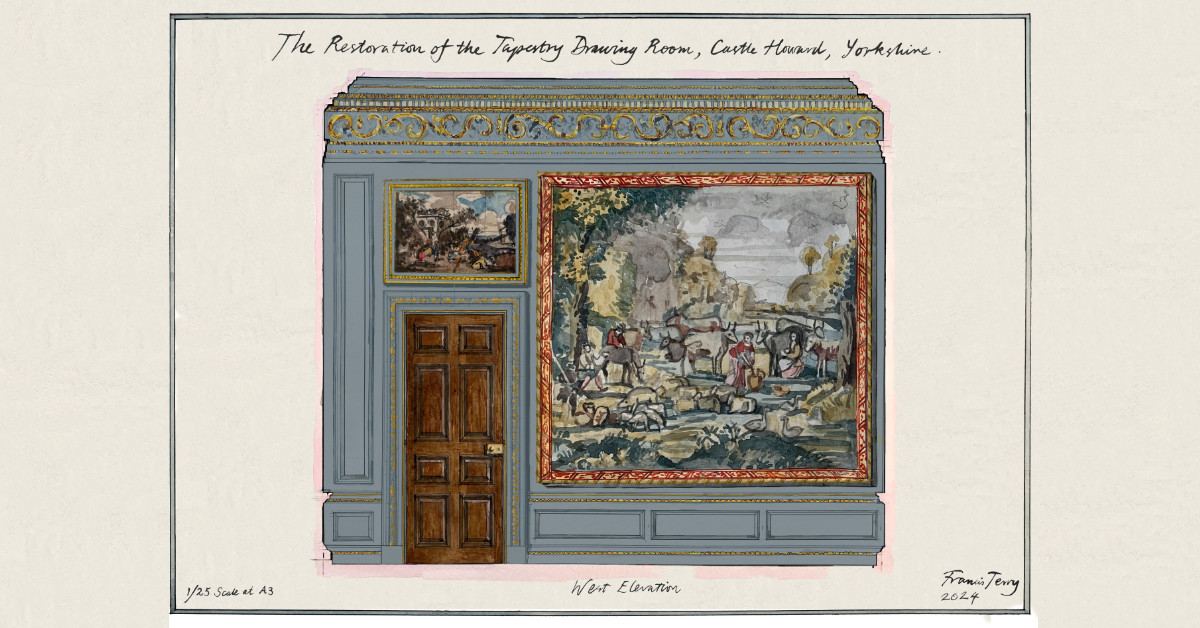 The Restoration of the Tapestry Drawing Room, Castle Howard, Yorkshire.
1/25 Scale at A3
West Elevation
Francis Terry
2024